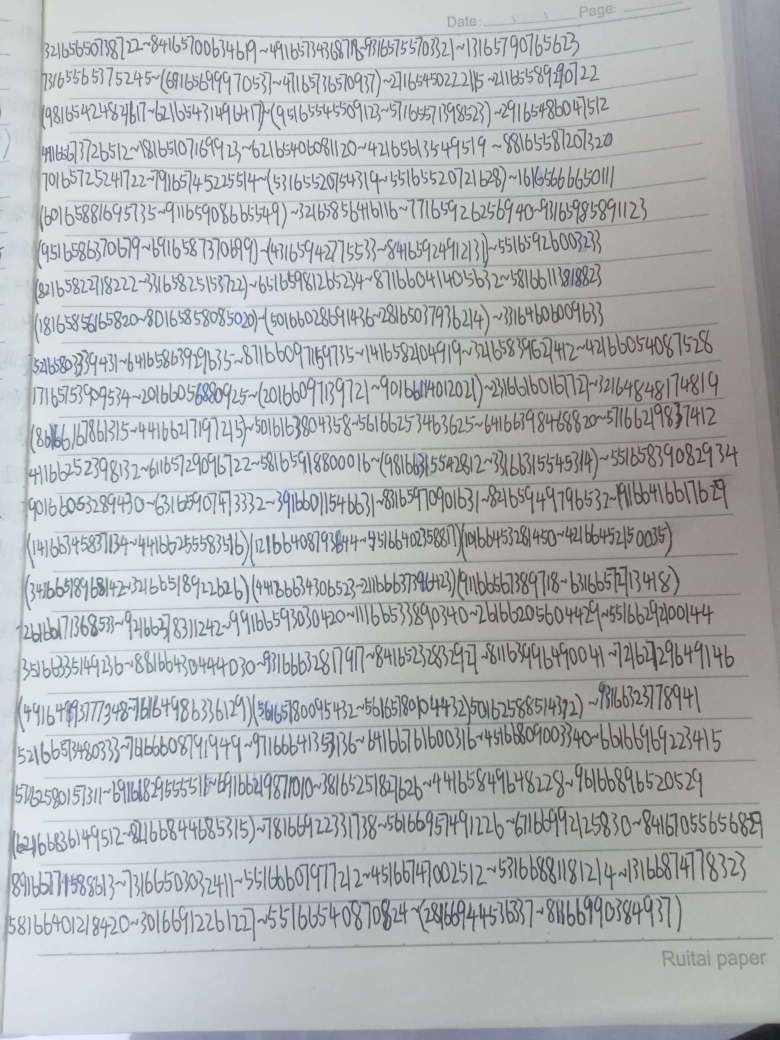 Date: Page:
32165650738722~84165700634619~49165734368718~93165755703321~13165790765623
73165565375245~(69165699970537~47165736570937)~27165450222115~21165589290722
(98165424824617~62165431496417)~(95165545509123~57165571398523)~29165486047512
49165673726512~18165107169923~62165406081120~42165613549519~88165587207320
70165725241722~79165745225514~(53165520754319~55165520721628)~16165666650111
(60165881695735~91165908665549)~32165856416116~77165926256940~93165985891123
(95165863706799~69165873706199)~(43165942775533~84165924912131)~55165926003233
(82165822718222~33165825153722)~65165981265234~87166041405632~58166113818823
(18165856165820~80165858085020)~(50166028691436~28165037936214)~33164606009633
52165803339431~64165863929635~87166097159735~1416582104919~32165839627412~42166054087528
17165753909534~20166056880925~(20166097139721~90166114012021)~23166160167727~32164848174819
(86166167861315~44166217197215)~5016163804358~56166253463625~64166398468820~57166219837412
41166252398132~61165729096722~58165918800016~(98166315542812~33166315545314)~55165839082934
90166053289430~63165907473332~39166011546631~83165970901631~82165949796532~19166416617629
(14166345837134~44166255583516)(12166408793644~45166402358817)(10166453281450~42166452150035)
(34166518968142~32166518922626)(44166634306523~21166637396423)(91166567389718~63166572713418)
72616017136853~92166278311242~99166593030420~11166533890340~26166205604429~55166292100144
35166335149236~88166430444030~93166632817917~84165232832927~81163996490041~72162729649146
(49164993777348~76164986336129)(56165780095432~56165780104432)50162588514392)~98166323778941
52166573480333~76166608791949~97166641353136~64166761600316~45166809003340~66166969223415
57162580157311~69116829555511~69166219871010~38165251827626~44165849648228~96166896520529
(62166836149512~82166844685315)~78166922331738~56166957491226~67166992125830~84167055656829
89166571588613~73166503032411~55166607977212~45166747002512~53166881181214~13166874778323
58166401218420~30166912261227~55166540870824~(28166944536337~81166990384937)
Ruitai paper